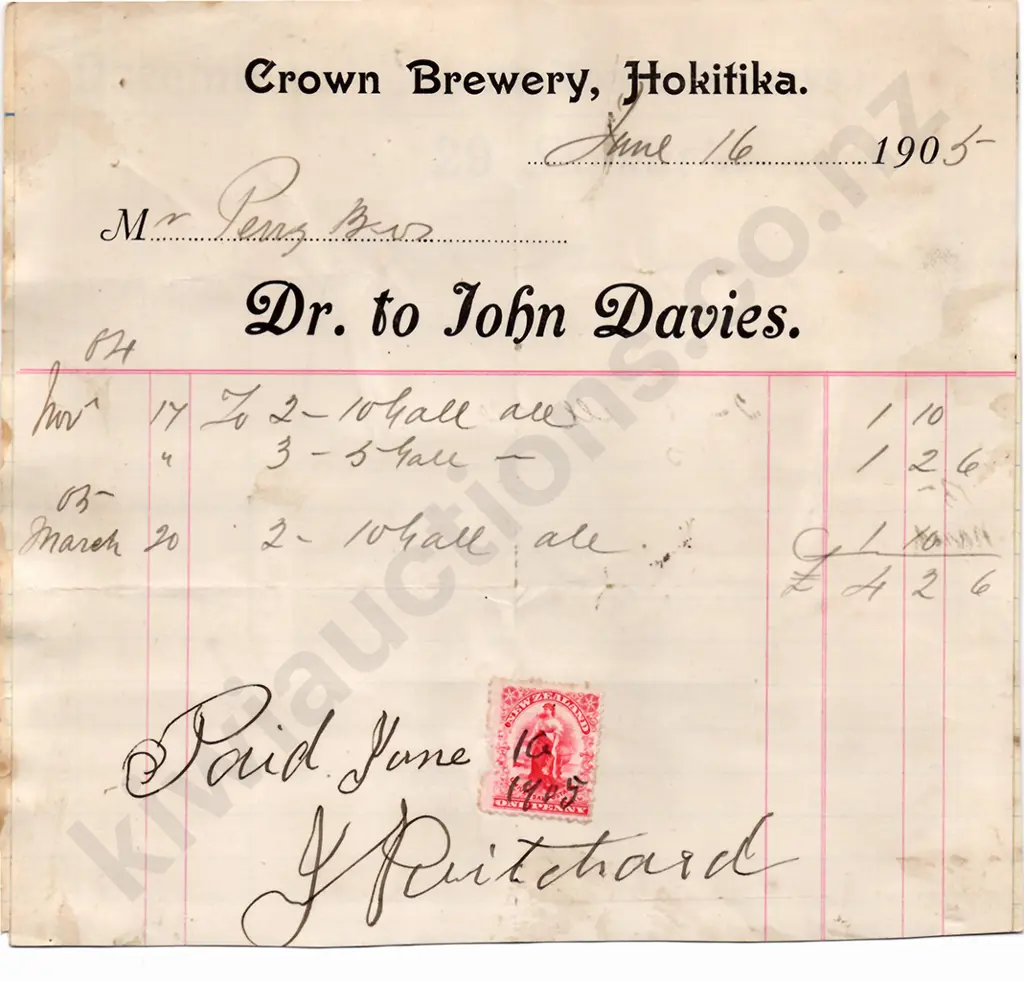 Crown Brewery, Hokitika.
June 16 1905
Mr Perry Bros
Dr. to John Davies.
04
Novr 17 To 2 - 10 Gall ale 1 10
" 3 - 5 Gall - 1 2 6
05
March 20 2 - 10 Gall ale. 1 10
£ 4 2 6
NEW ZEALAND
Paid June 16
1905
ONE PENNY
J Pritchard
kiwiauctions.co.nz